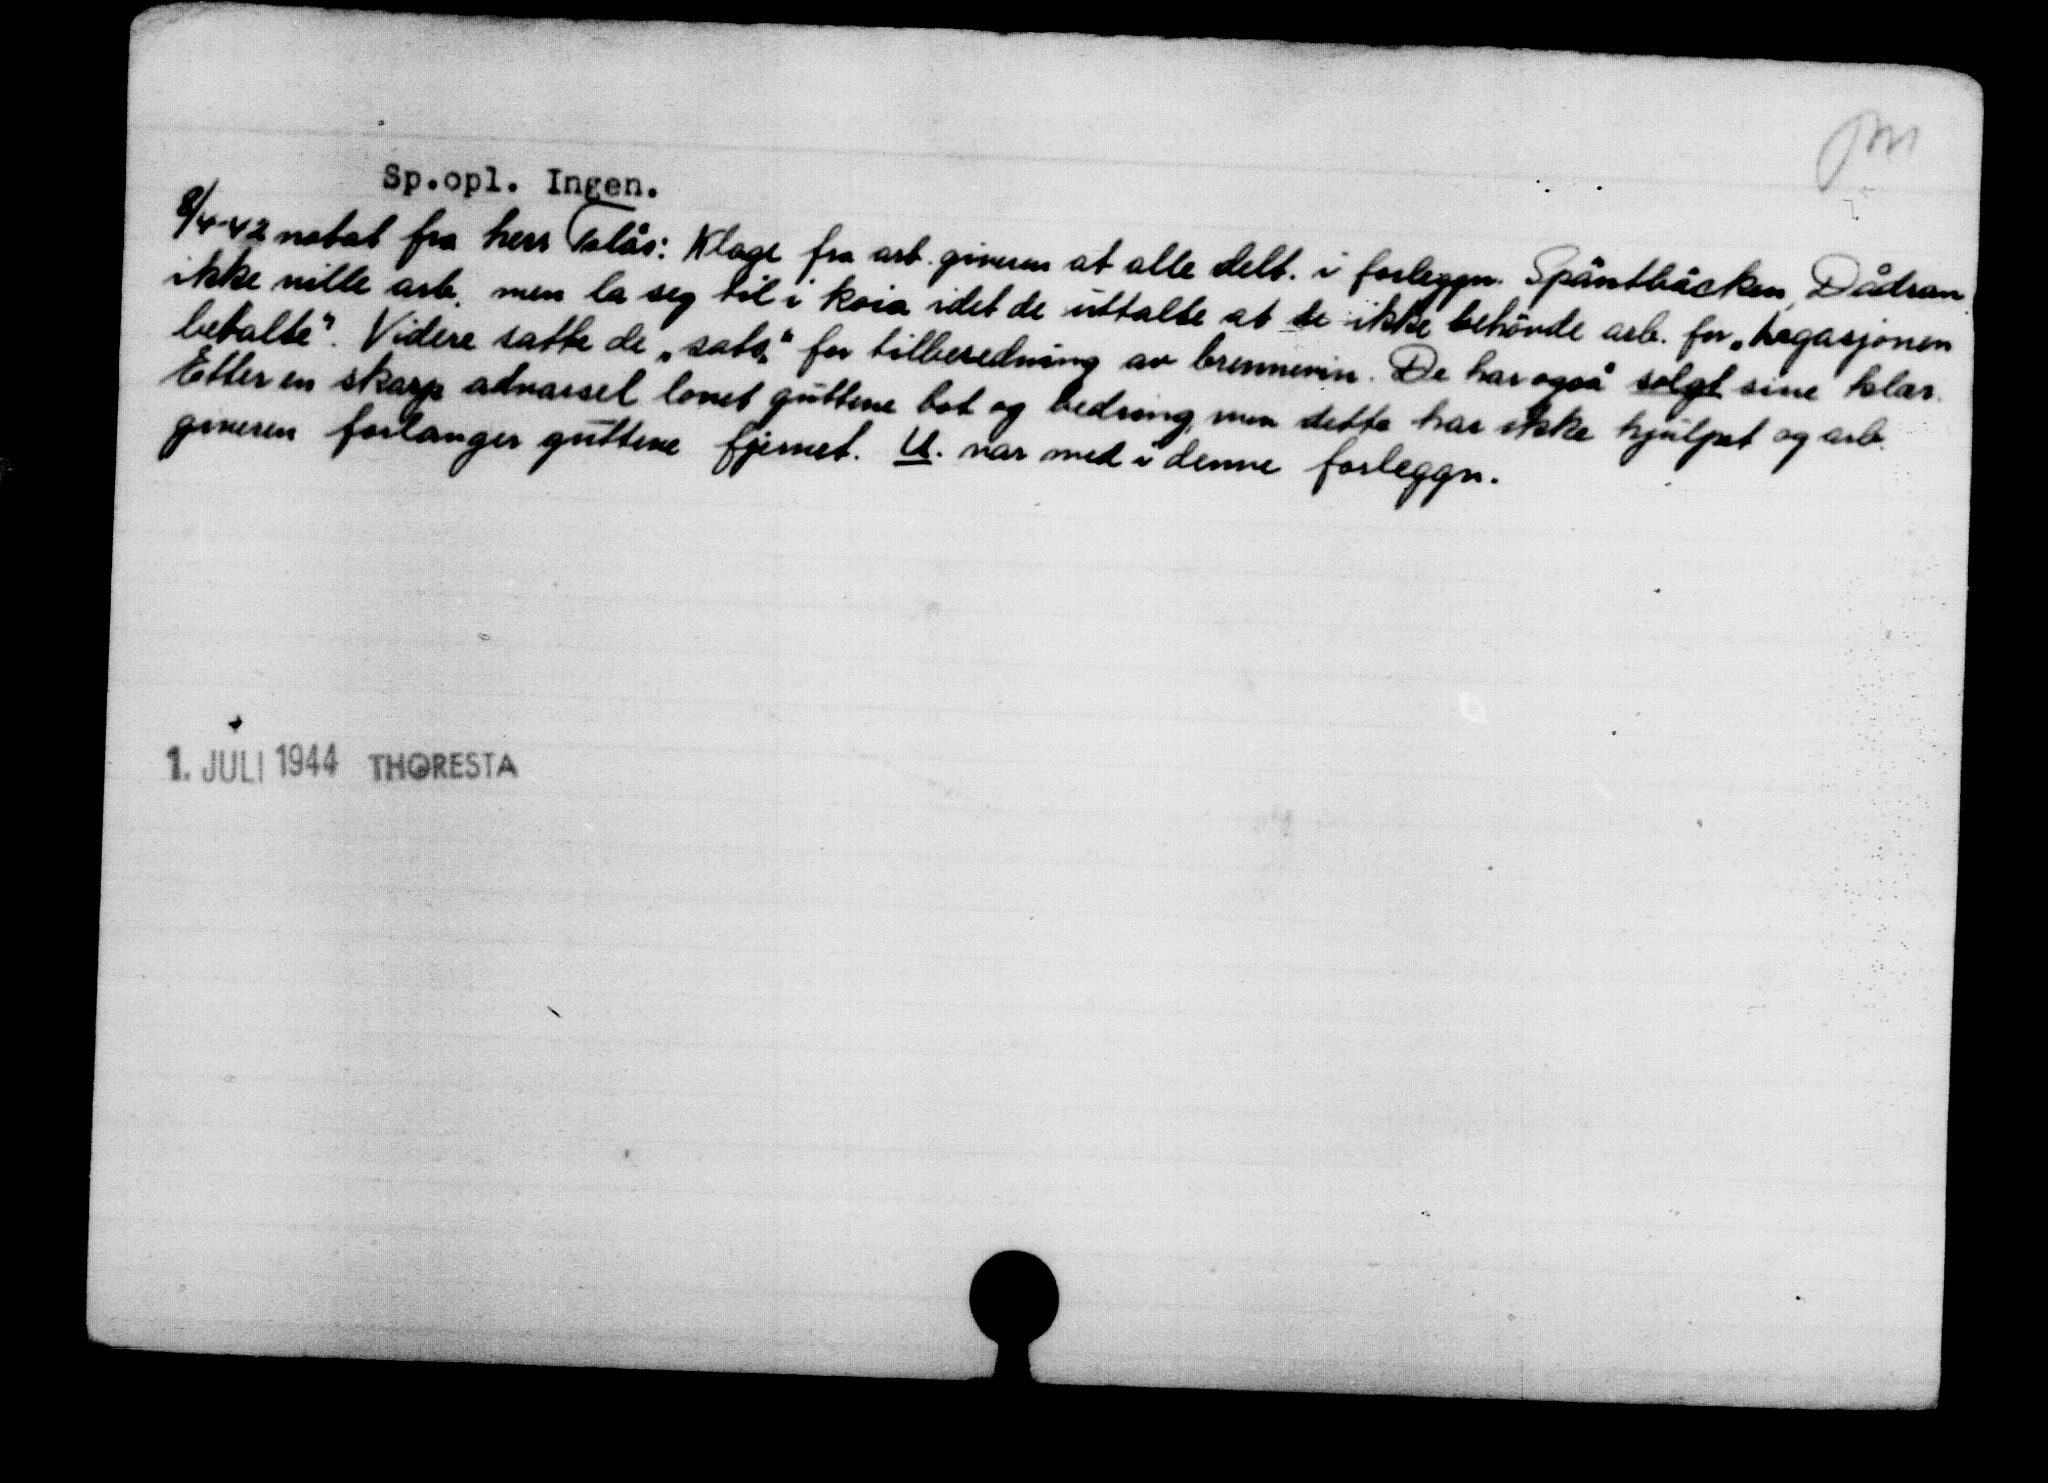 Sp.opl. Ingen.
8/4-42 notat fra herr Tolås: Klage fra arb. giveren at alle delt. i forleggn. Späntbäcken, Dådran
ikke ville arb. men la seg til i koia idet de uttalte at de ikke behövde arb. for „Legasjonen
betalte". Videre satte de „sats" for tilberedning av brennevin. De har også solgt sine klær.
Etter en skarp advarsel lovet guttene bot og bedring, men dette har ikke hjulpet og arb.
giveren forlanger guttene fjernet. U. var med i denne forleggn.
1. JULI 1944 THORESTA